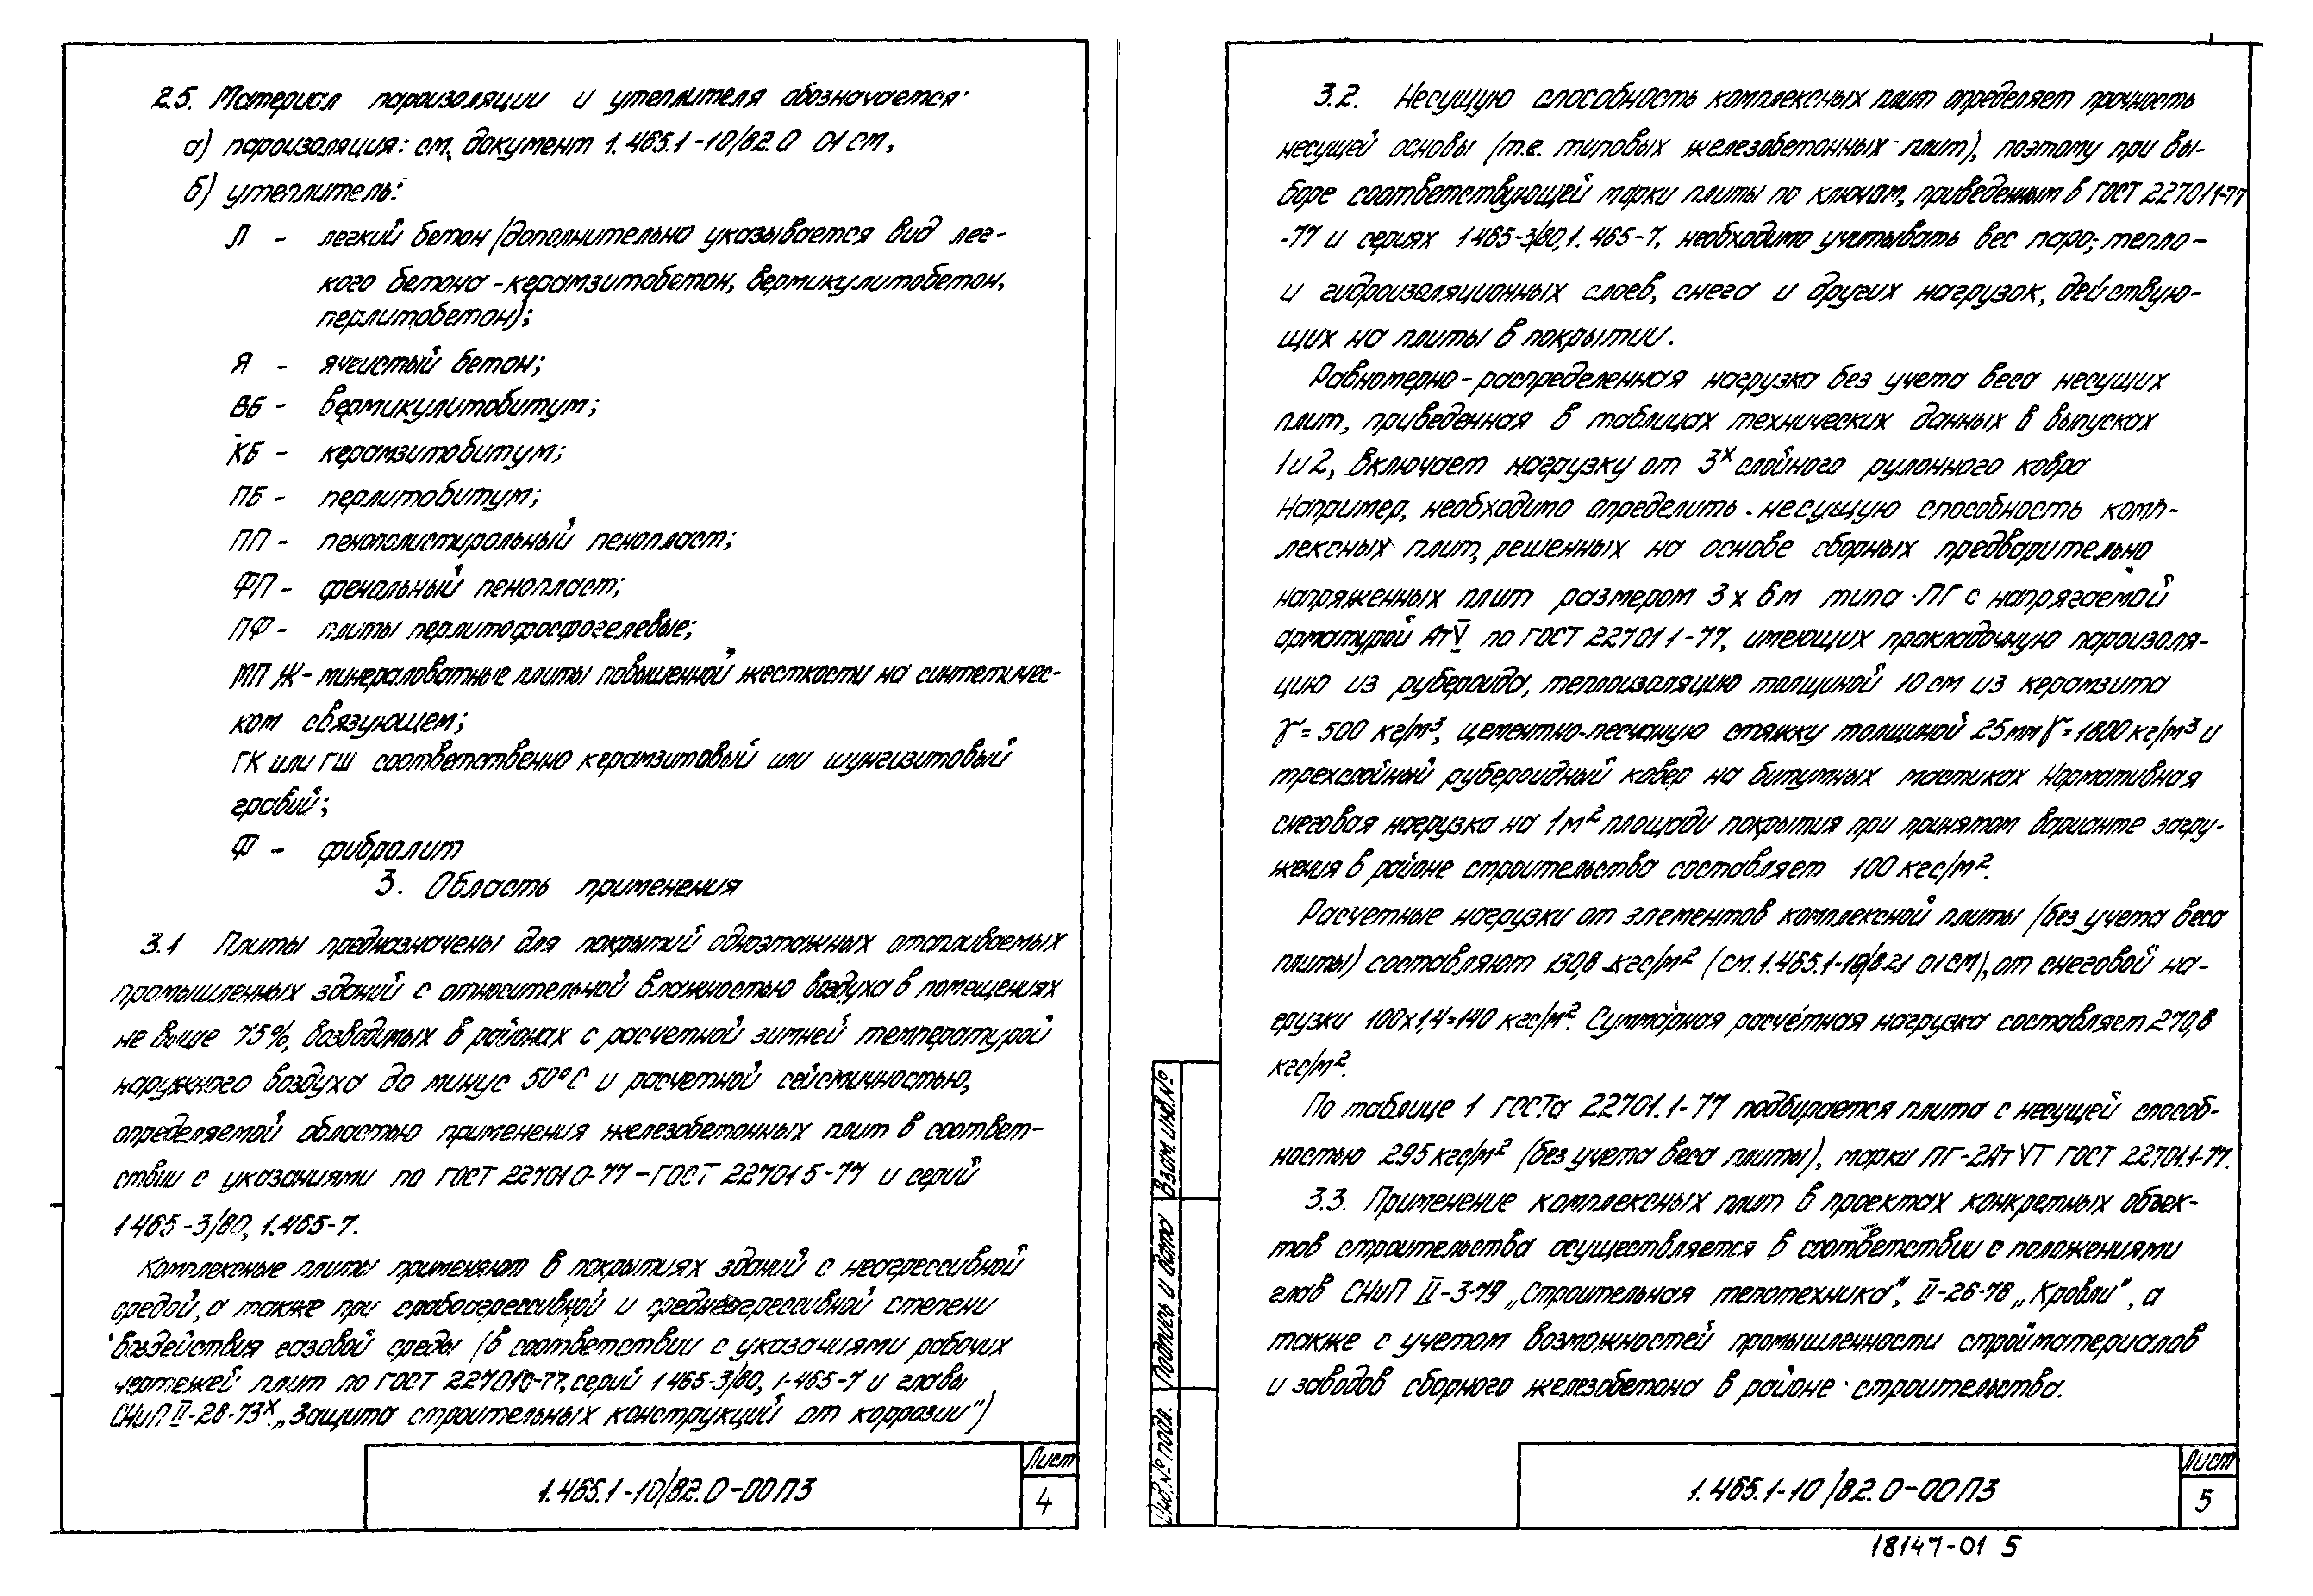 2.5. Материал пароизоляции и утеплителя обозначается:
а) пароизоляция: см. документ 1.465.1-10/82.0 01 СМ,
б) утеплитель:
Л - легкий бетон (дополнительно указывается вид лег-
кого бетона - керамзитобетон, вермикулитобетон,
перлитобетон);
Я - ячеистый бетон;
ВБ - вермикулитобитум;
КБ - керамзитобитум;
ПБ - перлитобитум;
ПП - пенополистирольный пенопласт;
ФП - фенольный пенопласт;
ПФ - плиты перлитофосфогелевые;
МПЖ - минераловатные плиты повышенной жесткости на синтетичес-
ком связующем;
ГК или ГШ соответственно керамзитовый или шунгизитовый
гравий;
Ф - фибролит
3. Область применения
3.1 Плиты предназначены для покрытий одноэтажных отапливаемых
промышленных зданий с относительной влажностью воздуха в помещениях
не выше 75%, возводимых в районах с расчетной зимней температурой
наружного воздуха до минус 50°С и расчетной сейсмичностью,
определяемой областью применения железобетонных плит в соответ-
ствии с указаниями по ГОСТ 22701 0-77 - ГОСТ 22701 5-77 и серий
1 465-3/80, 1.465-7.
Комплексные плиты применяют в покрытиях зданий с неагрессивной
средой, а также при слабоагрессивной и среднеагрессивной степени
воздействия газовой среды (в соответствии с указаниями рабочих
чертежей плит по ГОСТ 22701 0-77, серий 1 465-3/80, 1.465-7 и главы
СНиП II-28-73ˣ. „Защита строительных конструкций от коррозии")
1.465.1-10/82.0-00ПЗ
Лист
4
3.2. Несущую способность комплексных плит определяет прочность
несущей основы (т.е. типовых железобетонных плит), поэтому при вы-
боре соответствующей марки плиты по ключам, приведенным в ГОСТ 22701 1-77
-77 и сериях 1 465-3/80, 1.465-7. необходимо учитывать вес паро-, тепло-
и гидроизоляционных слоев, снега и других нагрузок, действую-
щих на плиты в покрытии.
Равномерно-распределенная нагрузка без учета веса несущих
плит, приведенная в таблицах технических данных в выпусках
1 и 2, включает нагрузку от 3ˣ слойного рулонного ковра
Например, необходимо определить несущую способность комп-
лексных плит, решенных на основе сборных предварительно
напряженных плит размером 3 х 6 м типа ПГ с напрягаемой
арматурой АтV по ГОСТ 22701 1-77, имеющих прокладочную пароизоля-
цию из рубероида, теплоизоляцию толщиной 10 см из керамзита
γ = 500 кг/м³, цементно-песчаную стяжку толщиной 25 мм γ = 1800 кг/м³ и
трехслойный рубероидный ковер на битумных мастиках Нормативная
снеговая нагрузка на 1 м² площади покрытия при принятом варианте загру-
жения в районе строительства составляет 100 кгс/м².
Расчетные нагрузки от элементов комплексной плиты (без учета веса
плиты) составляют 130,8 кгс/м² (см. 1.465.1-10/82.1 01СМ), от снеговой на-
грузки 100х1,4=140 кгс/м². Суммарная расчётная нагрузка составляет 270,8
кгс/м².
По таблице 1 ГОСТа 22701.1-77 подбирается плита с несущей способ-
ностью 295 кгс/м² (без учета веса плиты), марки ПГ-2АтVТ ГОСТ 22701.1-77.
3.3. Применение комплексных плит в проектах конкретных объек-
тов строительства осуществляется в соответствии с положениями
глав СНиП II-3-79 „Строительная тепотехника", II-26-76 „Кровли", а
также с учетом возможностей промышленности стройматериалов
и заводов сборного железобетона в районе строительства.
Взам. инв. №
Подпись и дата
Инв. № подл.
1.465.1-10/82.0-00ПЗ
Лист
5
18147-01 5